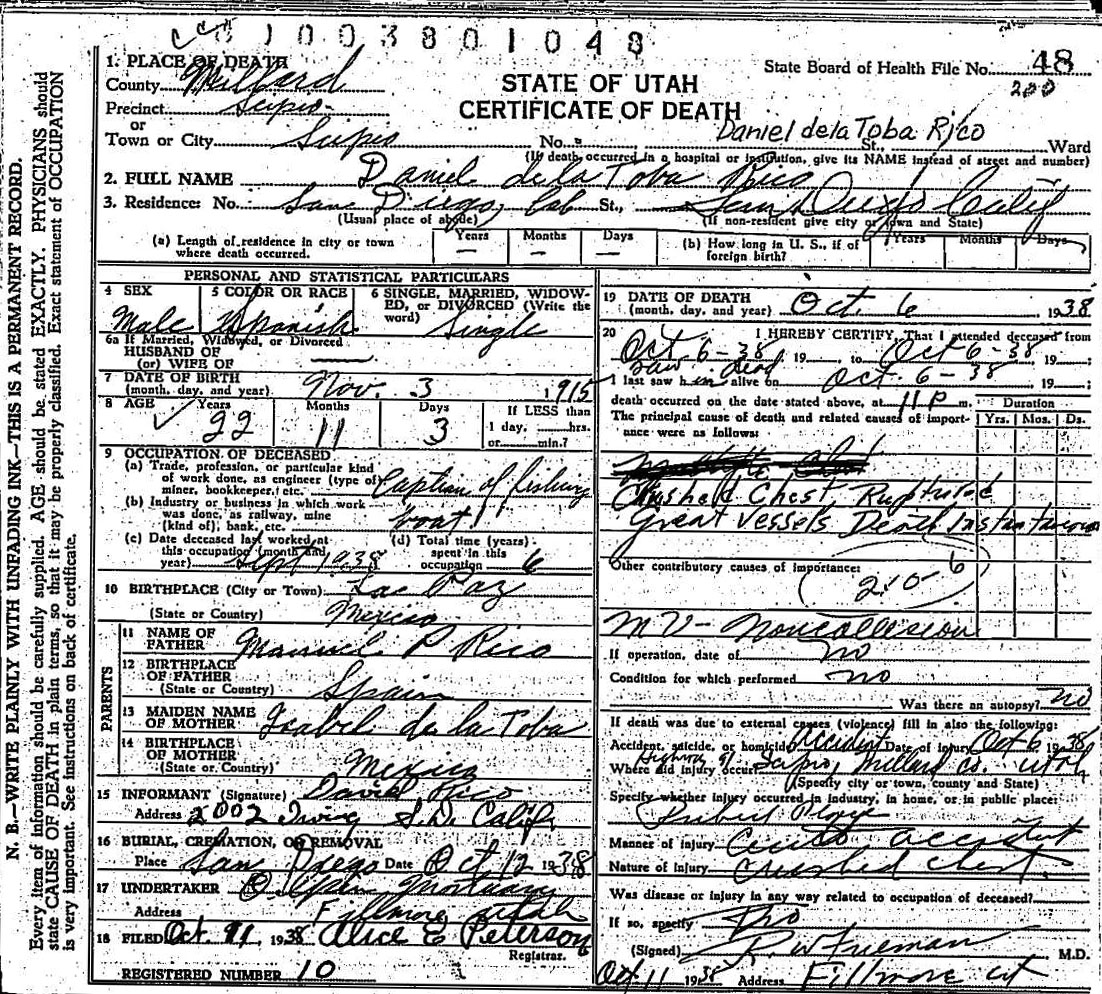 1003801048
1. PLACE OF DEATH
County Millard
Precinct Scipio
or
Town or City Scipio No. St., Ward
STATE OF UTAH
CERTIFICATE OF DEATH
State Board of Health File No. 48
200
Daniel de la Toba Rico
(If death occurred in a hospital or institution, give its NAME instead of street and number)
2. FULL NAME Daniel de la Toba Rico
3. Residence: No. San Diego, St., San Diego Calif
(Usual place of abode) (If non-resident give city or town and State)
(a) Length of residence in city or town where death occurred. Years — Months — Days —
(b) How long in U. S., if of foreign birth? Years Months Days
PERSONAL AND STATISTICAL PARTICULARS
4 SEX
Male
5 COLOR OR RACE
Spanish
6 SINGLE, MARRIED, WIDOWED, OR DIVORCED (Write the word) Single
6a If Married, Widowed, or Divorced
HUSBAND OF
(or) WIFE OF
7 DATE OF BIRTH
(month, day, and year) Nov. 3 1915
8 AGE Years 22 Months 11 Days 3
If LESS than
1 day, hrs.
or min.?
9 OCCUPATION OF DECEASED
(a) Trade, profession, or particular kind of work done, as engineer (type of) miner, bookkeeper, etc. Caption of fishing
(b) Industry or business in which work was done, as railway, mine (kind of), bank, etc. boat
(c) Date deceased last worked at this occupation (month and year) Sept 1938
(d) Total time (years) spent in this occupation 6
10 BIRTHPLACE (City or Town) Lac Paz
(State or Country) Mexico
PARENTS
11 NAME OF FATHER Manuel P Rico
12 BIRTHPLACE OF FATHER
(State or Country) Spain
13 MAIDEN NAME OF MOTHER Isabel de la Toba
14 BIRTHPLACE OF MOTHER
(State or Country) Mexico
15 INFORMANT (Signature) David Rico
Address 2002 Irving S.D. Calif
16 BURIAL, CREMATION, OR REMOVAL
Place San Diego Date Oct 12 1938
17 UNDERTAKER Mortuary
Address Fillmore, Utah
18 FILED Oct. 11 1938 Alice E Peterson
Registrar.
REGISTERED NUMBER 10
19 DATE OF DEATH
(month, day, and year) Oct. 6 1938
20 I HEREBY CERTIFY, That I attended deceased from
Oct 6-38 19 , to Oct 6-38 19 ;
saw dead
I last saw him alive on Oct 6-38 19 ;
death occurred on the date stated above, at 11 P m.
Duration
Yrs. Mos. Ds.
The principal cause of death and related causes of importance were as follows:
Crushed Chest, Ruptured
Great Vessels Death Instantaneous
Other contributory causes of importance:
210 6
MV- Noncollision
If operation, date of no
Condition for which performed no
Was there an autopsy? no
If death was due to external causes (violence) fill in also the following:
Accident, suicide, or homicide? Accident Date of injury Oct 6 1938
Where did injury occur? Highway of Scipio, Millard Co. Utah
(Specify city or town, county and State)
Specify whether injury occurred in industry, in home, or in public place:
Public Place
Manner of injury Auto accident
Nature of injury Crushed chest.
Was disease or injury in any way related to occupation of deceased?
If so, specify No
(Signed) R W Freeman M.D.
Oct 11 1938 Address Fillmore Ut
N. B.—WRITE PLAINLY WITH UNFADING INK—THIS IS A PERMANENT RECORD.
Every item of information should be carefully supplied. AGE should be stated EXACTLY. PHYSICIANS should
state CAUSE OF DEATH in plain terms, so that it may be properly classified. Exact statement of OCCUPATION
is very important. See instructions on back of certificate.